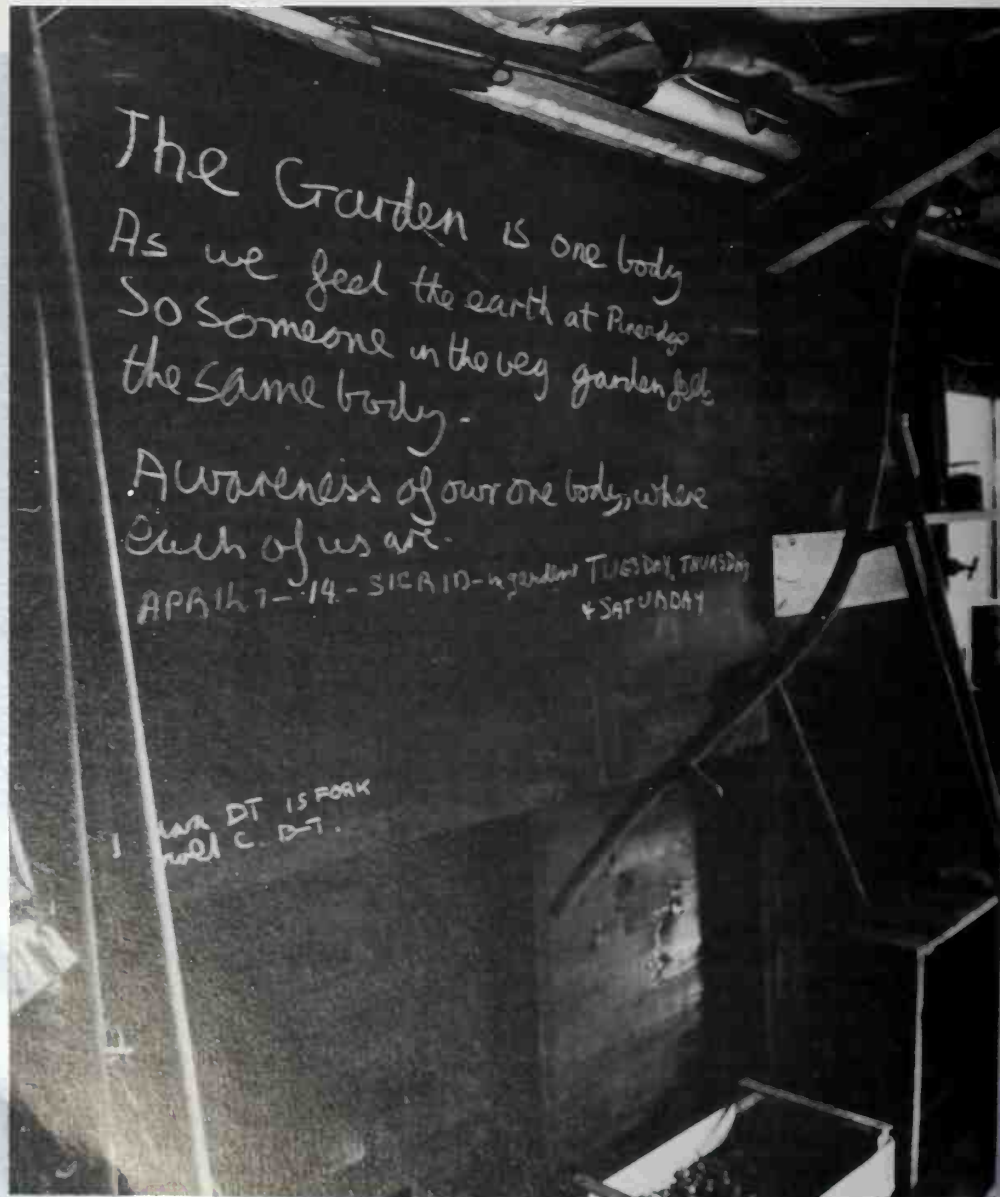 The Garden is one body
As we feel the earth at Pineridge
So someone in the veg garden feels
the same body.
Awareness of our one body, where
each of us are.
APRIL 7-14 - SIGRID - in gardens TUESDAY, THURSDAY
& SATURDAY
DT IS FORK
C. D-T.